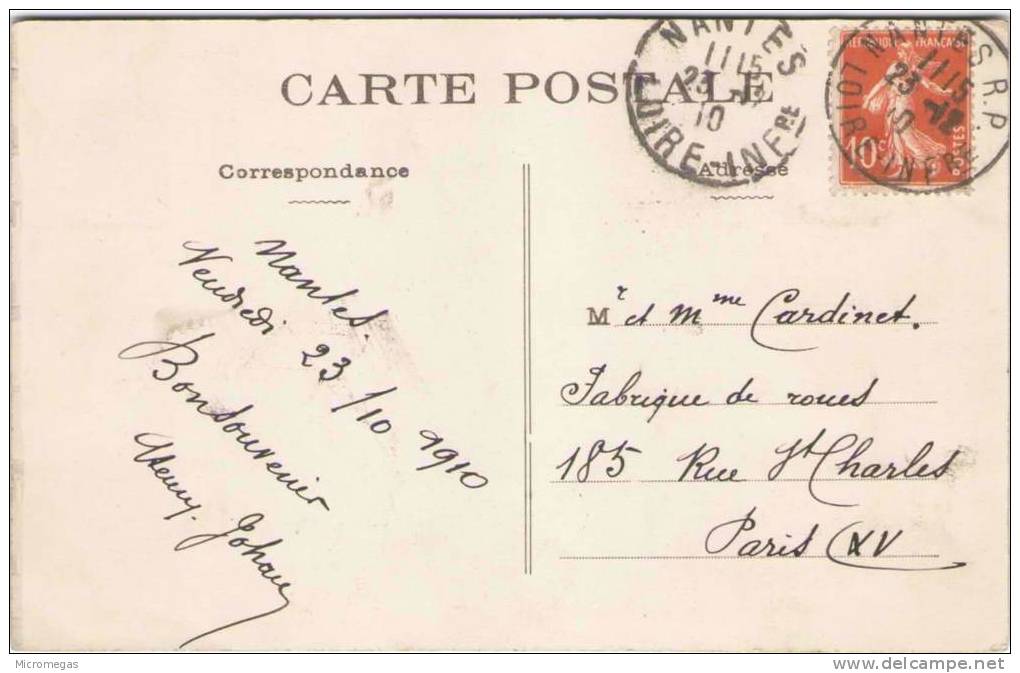 CARTE POSTALE
NANTES
11 15
23 -12
10
LOIRE-INFRE
NANTES R.P.
11 15
23 -12
10
LOIRE INFRE
REPUBLIQUE FRANCAISE
10c
POSTES
Correspondance
Adresse
Nantes.
Vendredi 23/10 1910
Bonsouvenir
Henry. Johan
Mr et Mme Cardinet.
Fabrique de roues
185 Rue St Charles
Paris XV
Micromegas
delcampe.net